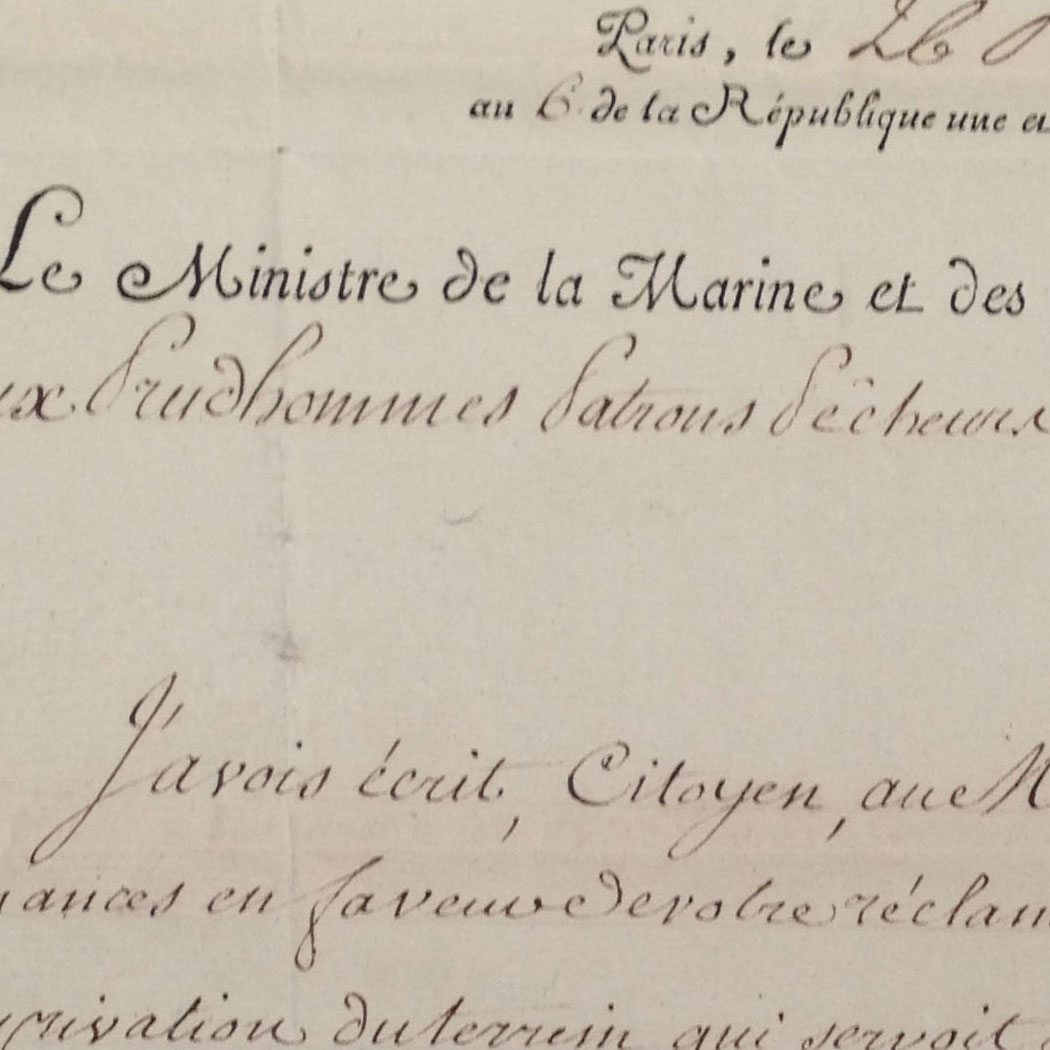 Paris, le 26
au 6 de la République une et
Le Ministre de la Marine et des
ux Prudhommes Patrons Pêcheurs
J'avois écrit, Citoyen, au M
nances en faveur de votre réclam
privation du terrein qui servoit